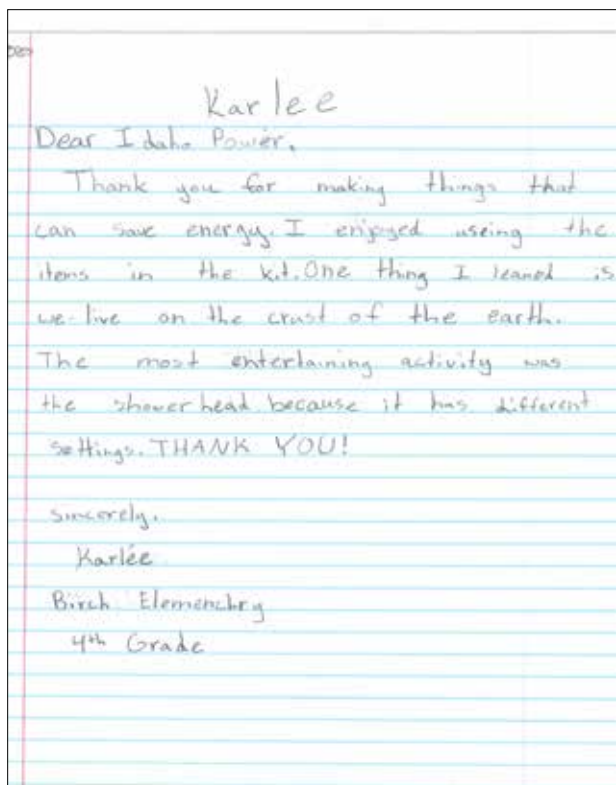 Karlee
Dear Idaho Power,
Thank you for making things that
can save energy. I enjoyed useing the
items in the kit. One thing I leaned is
we live on the crust of the earth.
The most entertaining activity was
the shower head because it has different
settings. THANK YOU!
sincerely,
Karlee
Birch Elementry
4th Grade